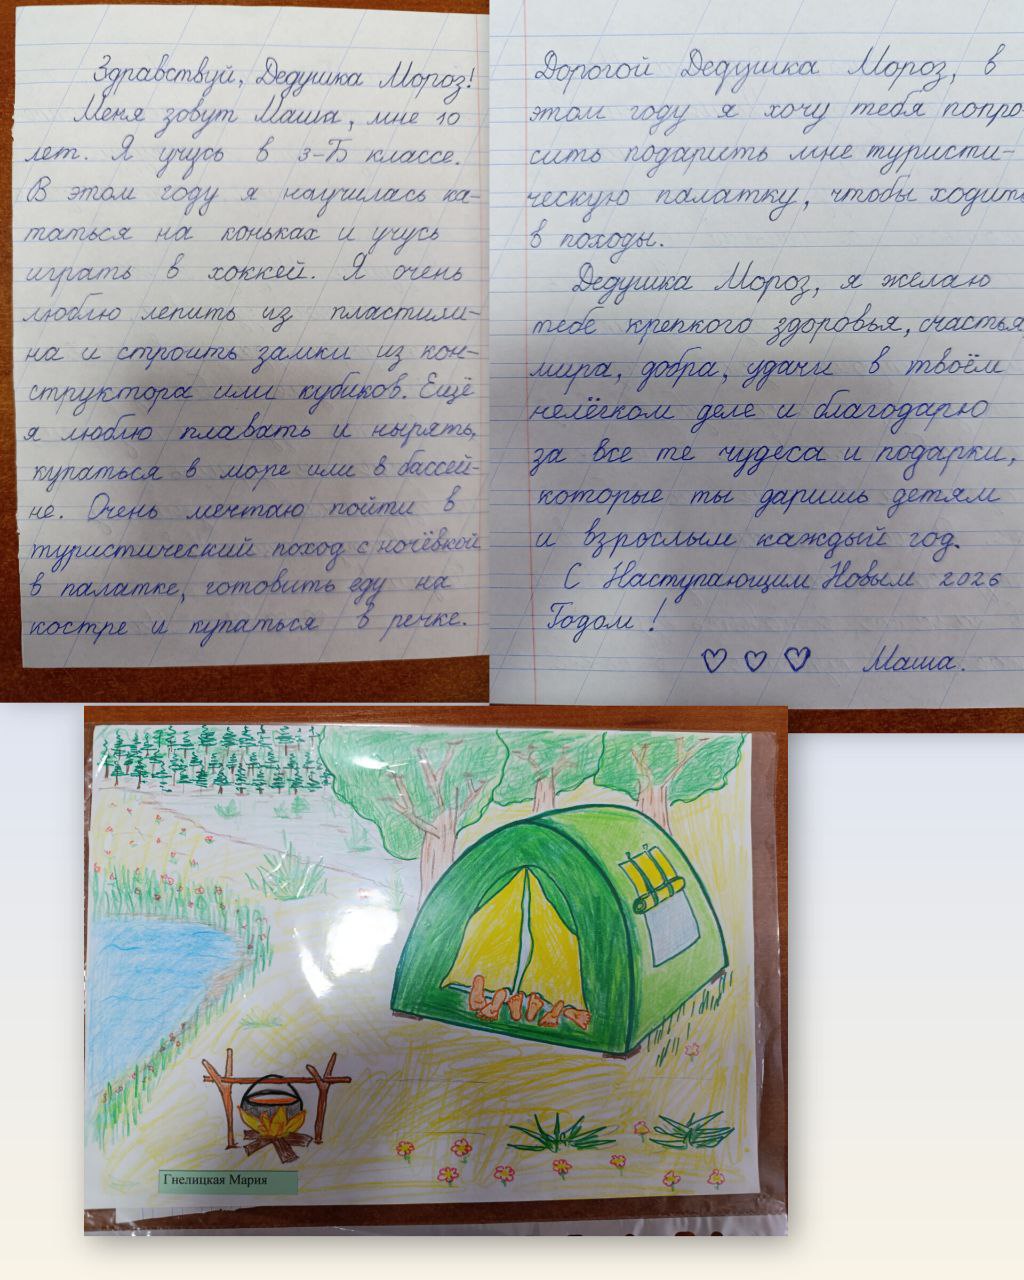 Здравствуй, Дедушка Мороз!
Меня зовут Маша, мне 10
лет. Я учусь в 3-Б классе.
В этом году я научилась ка-
таться на коньках и учусь
играть в хоккей. Я очень
люблю лепить из пластили-
на и строить замки из кон-
структора или кубиков. Ещё
я люблю плавать и нырять,
купаться в море или в бассей-
не. Очень мечтаю пойти в
туристический поход с ночёвкой
в палатке, готовить еду на
костре и купаться в речке.
Дорогой Дедушка Мороз, в
этом году я хочу тебя попро
сить подарить мне туристи-
ческую палатку, чтобы ходить
в походы.
Дедушка Мороз, я желаю
тебе крепкого здоровья, счастья,
мира, добра, удачи в твоём
нелёгком деле и благодарю
за все те чудеса и подарки,
которые ты даришь детям
и взрослым каждый год.
С Наступающим Новым 2026
Годом!
Маша.
Гнелицкая Мария